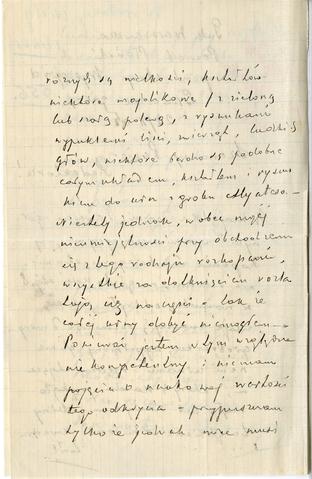 różnych są wielkości, kształtów
niektóre majolikowe / z zieloną
lub szarą polewą, z rysunkami
wypukłemi liści, zwierząt, ludzkich
głów, niektóre bardzo są podobne
całym układem, kształtem i rysun
kiem do urn z grobu
Niestety jednak, wobec mojej
nieumiejętności przy obchodzeniu
się z tego rodzaju rozkopami,
wszystkie za dotknięciem rozla
tują się na części – tak że
całej urny dobyć niemogłem –
Ponieważ jestem w tym względzie
nie kompetentny i niemam
pojęcia o naukowej wartości
tego odkrycia – przypuszczam
tylko że jednak musi